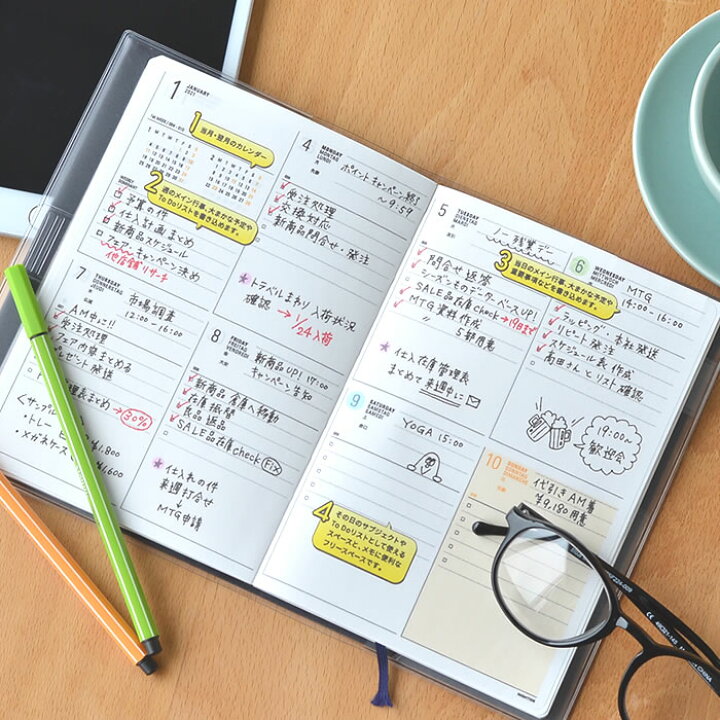 1
JANUARY
2021
1
当月・翌月のカレンダー
2
週のメイン行事、大まかな予定や
To Doリストを書き込めます。
予算の件
仕入計画まとめ
新商品スケジュール
フェア・キャンペーン決め
他店舗リサーチ
4
MONDAY
MONTAG
LUNDI
ポイントキャンペーン終り
〜9:59
発注処理
交換対応
新商品問合せ・発注
トラベルまわり入荷状況
確認 → 1/24入荷
5
TUESDAY
DIENSTAG
MARDI
ノー残業デー
問合せ返答
シーズンものデータベースUP!
SALE品在庫check → 19日まで
MTG資料作成
5部用意
仕入在庫管理表
まとめて来週中に
6
WEDNESDAY
MITTWOCH
MERCREDI
3
当日のメイン行事、大まかな予定や
重要事項などを書き込めます。
MTG
14:00-16:00
ラッピング・本社発送
リピート発注
スケジュール表作成
高田さんとリスト確認
19:00〜
歓迎会
7
THURSDAY
DONNERSTAG
JEUDI
市場調査
12:00-16:00
AM中に!!
発注処理
フェア内容まとめる
プレゼント発送
管理表まとめ → 30%
<サンプル
・トレー
¥1,800
・メガネケース
¥1,600
8
FRIDAY
FREITAG
VENDREDI
新商品UP! 17:00
キャンペーン告知
新商品倉庫へ移動
在庫振替
良品返品
SALE品在庫check Fix
仕入れの件
来週打合せ
↓
MTG申請
9
SATURDAY
SAMSTAG
SAMEDI
YOGA 15:00
4
その日のサブジェクトや
To Doリストとして使える
スペースと、メモに便利な
フリースペースです。
10
SUNDAY
SONNTAG
DIMANCHE
代引きAM着
¥9,180用意